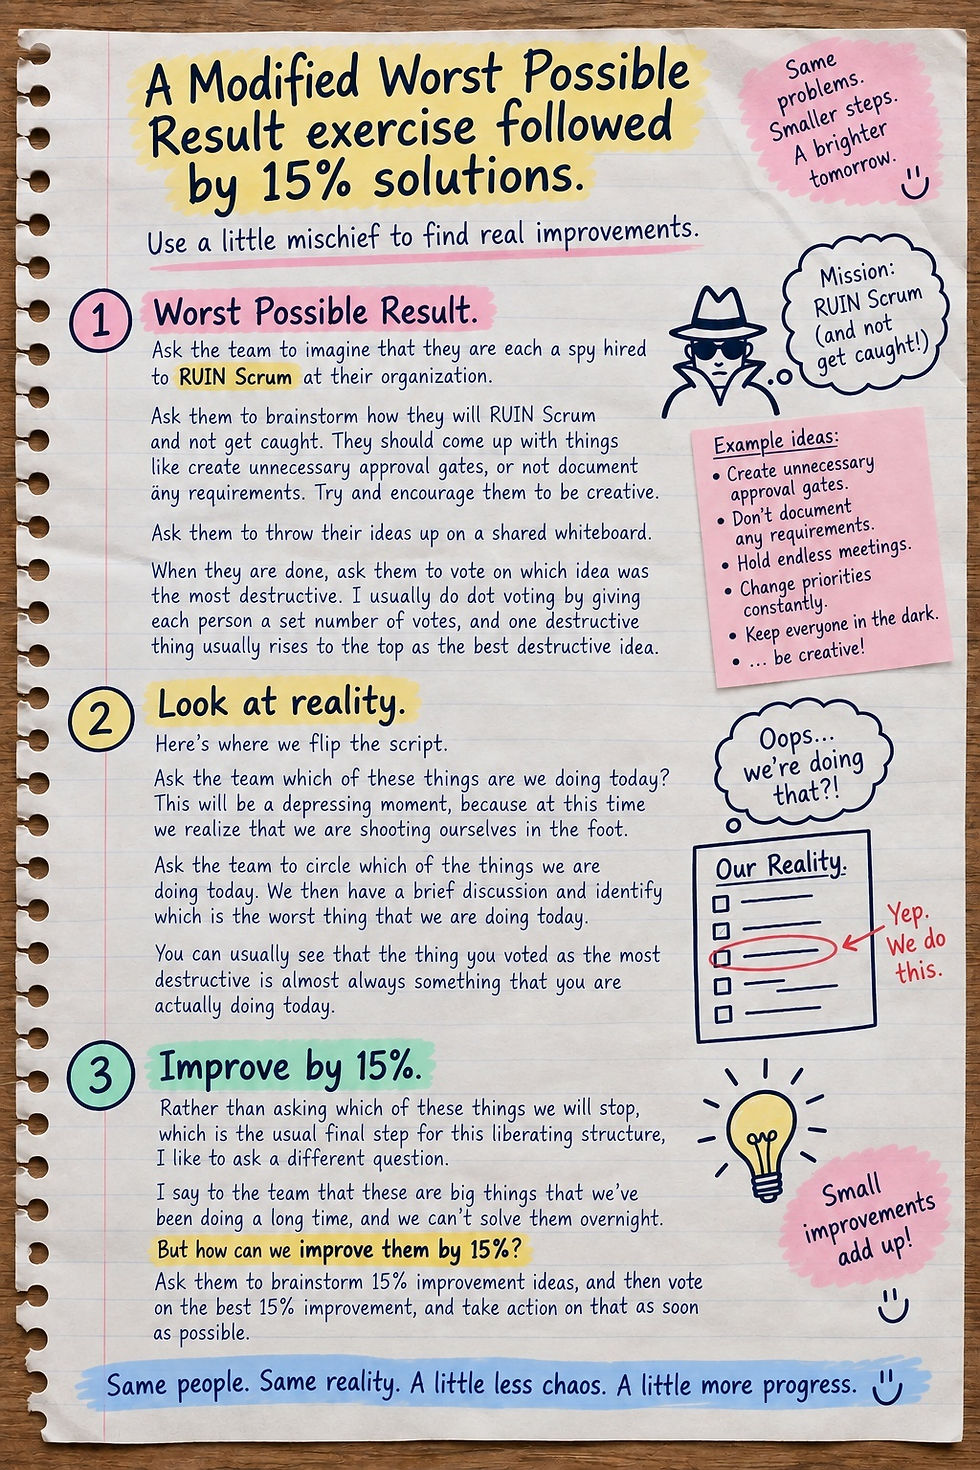 A Modified Worst Possible
Result exercise followed
by 15% solutions.
Same
problems.
Smaller steps.
A brighter
tomorrow.
Use a little mischief to find real improvements.
1
Worst Possible Result.
Ask the team to imagine that they are each a spy hired
to RUIN Scrum at their organization.
Mission:
RUIN Scrum
(and not
get caught!)
Ask them to brainstorm how they will RUIN Scrum
and not get caught. They should come up with things
like create unnecessary approval gates, or not document
äny requirements. Try and encourage them to be creative.
Ask them to throw their ideas up on a shared whiteboard.
When they are done, ask them to vote on which idea was
the most destructive. I usually do dot voting by giving
each person a set number of votes, and one destructive
thing usually rises to the top as the best destructive idea.
Example ideas:
• Create unnecessary
approval gates.
• Don't document
any requirements.
• Hold endless meetings.
• Change priorities
constantly.
• Keep everyone in the dark.
• ... be creative!
2
Look at reality.
Here's where we flip the script.
Ask the team which of these things are we doing today?
This will be a depressing moment, because at this time
we realize that we are shooting ourselves in the foot.
Ask the team to circle which of the things we are
doing today. We then have a brief discussion and identify
which is the worst thing that we are doing today.
You can usually see that the thing you voted as the most
destructive is almost always something that you are
actually doing today.
Oops...
we're doing
that?!
Our Reality.
Yep.
We do
this.
3
Improve by 15%.
Rather than asking which of these things we will stop,
which is the usual final step for this liberating structure,
I like to ask a different question.
I say to the team that these are big things that we've
been doing a long time, and we can't solve them overnight.
But how can we improve them by 15%?
Ask them to brainstorm 15% improvement ideas, and then vote
on the best 15% improvement, and take action on that as soon
as possible.
Small
improvements
add up!
Same people. Same reality. A little less chaos. A little more progress.